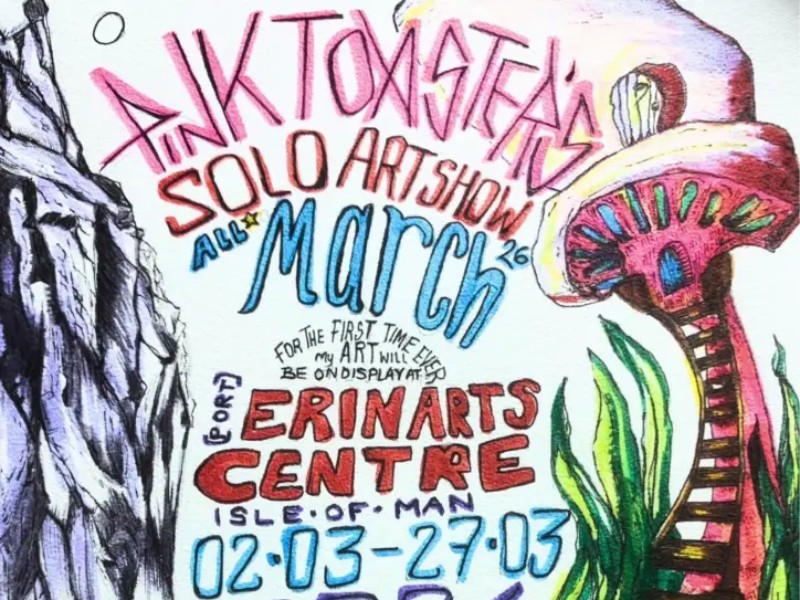 PINK TOASTER'S
SOLO ART SHOW
ALL March 26
FOR THE FIRST TIME EVER
my ART WILL
BE ON DISPLAY AT
(PORT) ERIN ARTS
CENTRE
ISLE·OF·MAN
02·03-27·03